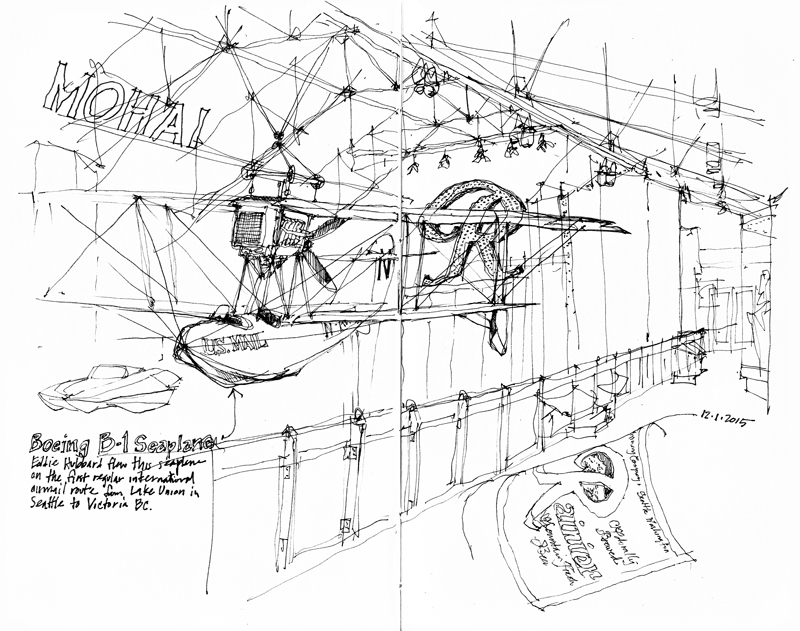 MOHAI
U.S. MAIL
Boeing B-1 Seaplane
Eddie Hubbard flew this seaplane
on the first regular international
airmail route from Lake Union in
Seattle to Victoria BC.
12.1.2015
R
Rainier
Mountain Fresh
Beer
Company, Seattle Washington